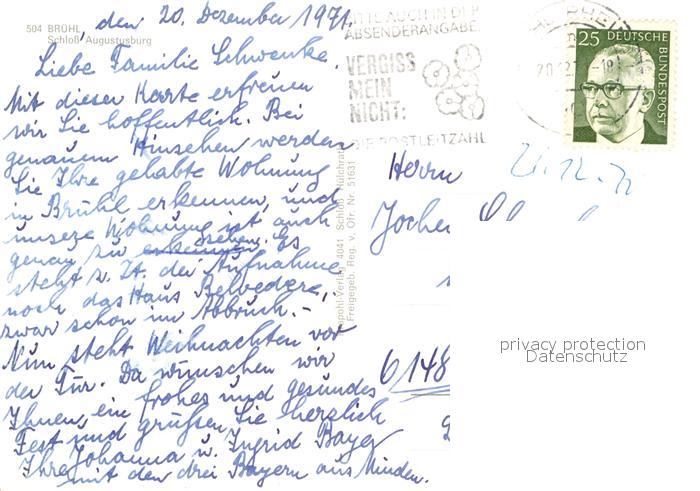 , den 20. Dezember 1971.
504 BRÜHL
Schloß Augustusburg
Liebe Familie Schwenke.
Mit dieser Karte erfreuen
wir Sie hoffentlich. Bei
genauem Hinsehen werden
Sie Ihre gehabte Wohnung
in Brühl erkennen, und
unsere Wohnung ist auch
genau zu erkennen sehen. Es
steht z. Zt. der Aufnahme
noch das Haus Belvedere,
zwar schon im Abbruch. –
Nun steht Weihnachten vor
der Tür. Da wünschen wir
Ihnen, ein frohes und gesundes
Fest und grüßen Sie herzlich
Ihre Johanna u. Ingrid Bayer
mit den drei Bayern aus Minden.
BITTE AUCH IN DER
ABSENDERANGABE
VERGISS
MEIN
NICHT:
DIE POSTLEITZAHL
25 DEUTSCHE
BUNDESPOST
21.12.71
Herrn
Jochen
6148
4041 Schloß
Freigegeb. Reg. v. Ofr. Nr. 51631
privacy protection
Datenschutz